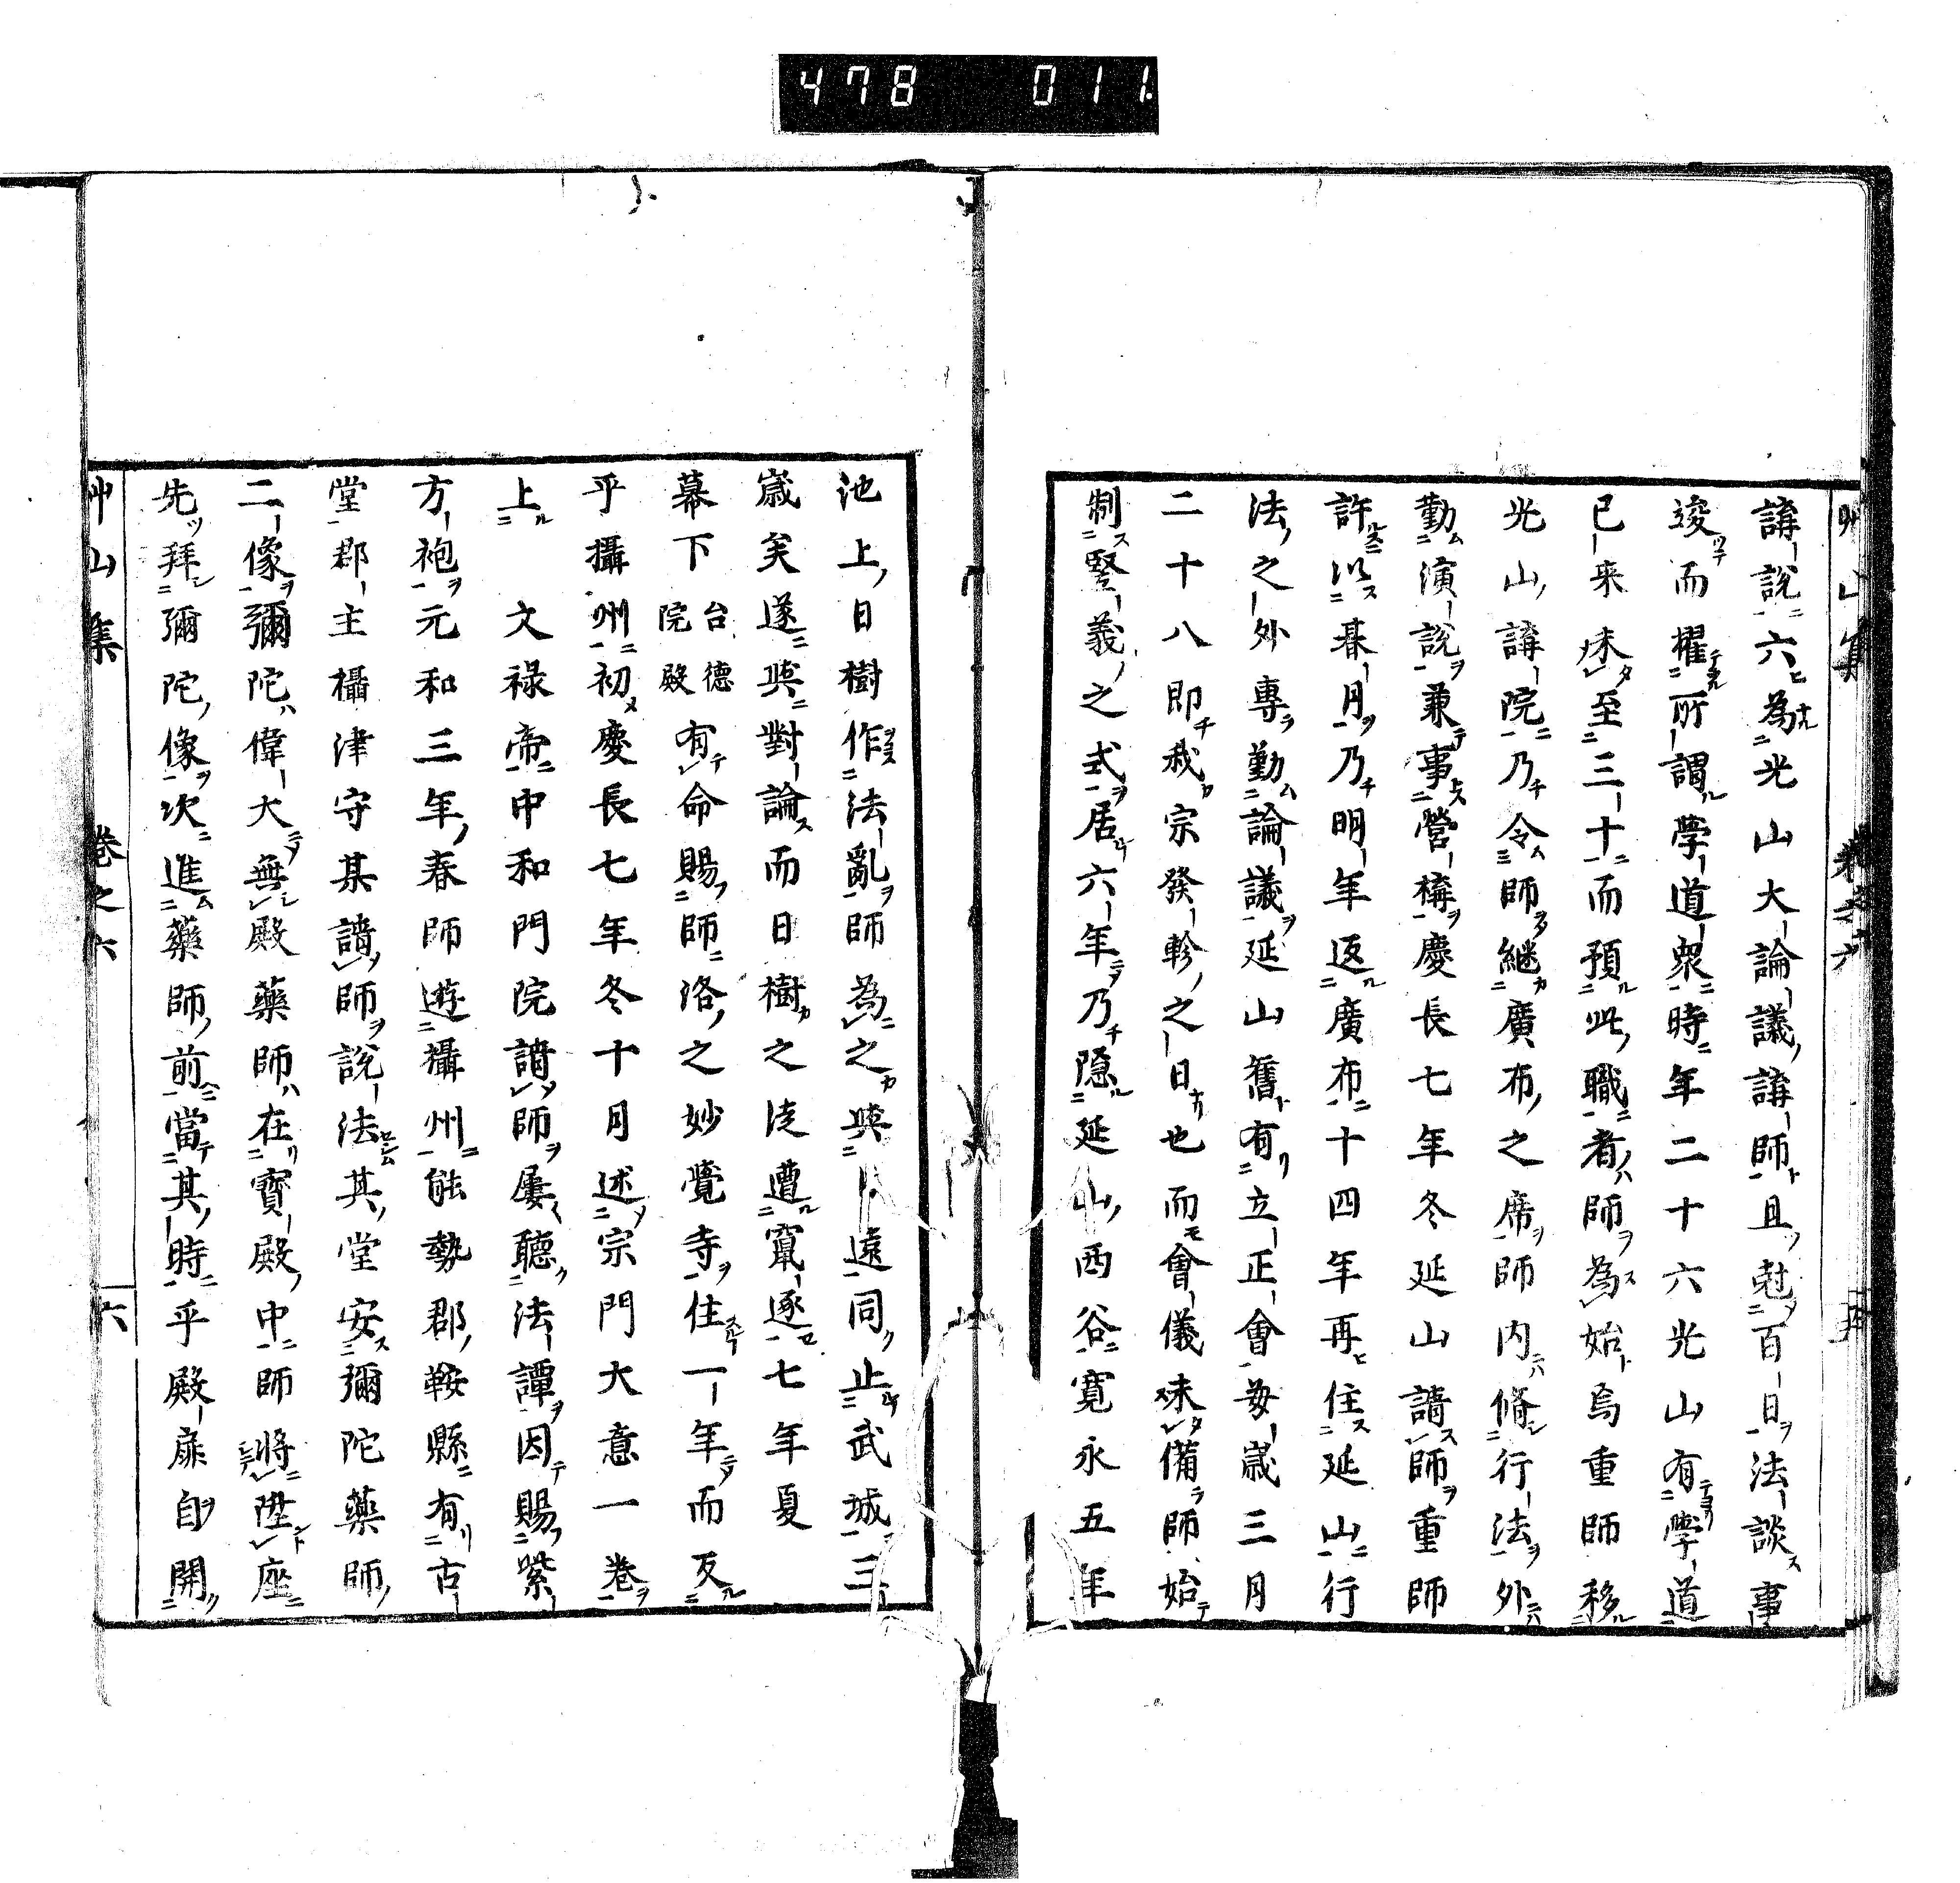 478 011
講説六為光山大論議講師且尅百日法談事
竣而櫂所謂學道衆時年二十六光山有學道
已来未至三十而預此職者師為始焉重師移
光山講院乃令師継廣布之席師内脩行法外
勤演説兼事營構慶長七年冬延山請師重師
許以暮月乃明年返廣布十四年再住延山行
法之外專勤論議延山舊有立正會毎歳三月
二十八即我宗發軫之日也而會儀未備師始
制竪義之式居六年乃隠延山西谷寛永五年
池上日樹作法亂師為之與遠同止武城三
歳矣遂與對論而日樹之徒遭竄逐七年夏
幕下台德院殿有命賜師洛之妙覺寺住一年而反
乎攝州初慶長七年冬十月述宗門大意一卷
上文禄帝中和門院請師屢聽法譚因賜紫
方袍元和三年春師遊攝州能勢郡鞍縣有古
堂郡主攝津守某請師説法其堂安彌陀藥師
二像彌陀偉大無殿藥師在寶殿中師將陞座
先拜彌陀像次進藥師前當其時乎殿扉自開
艸山集 卷之六 六